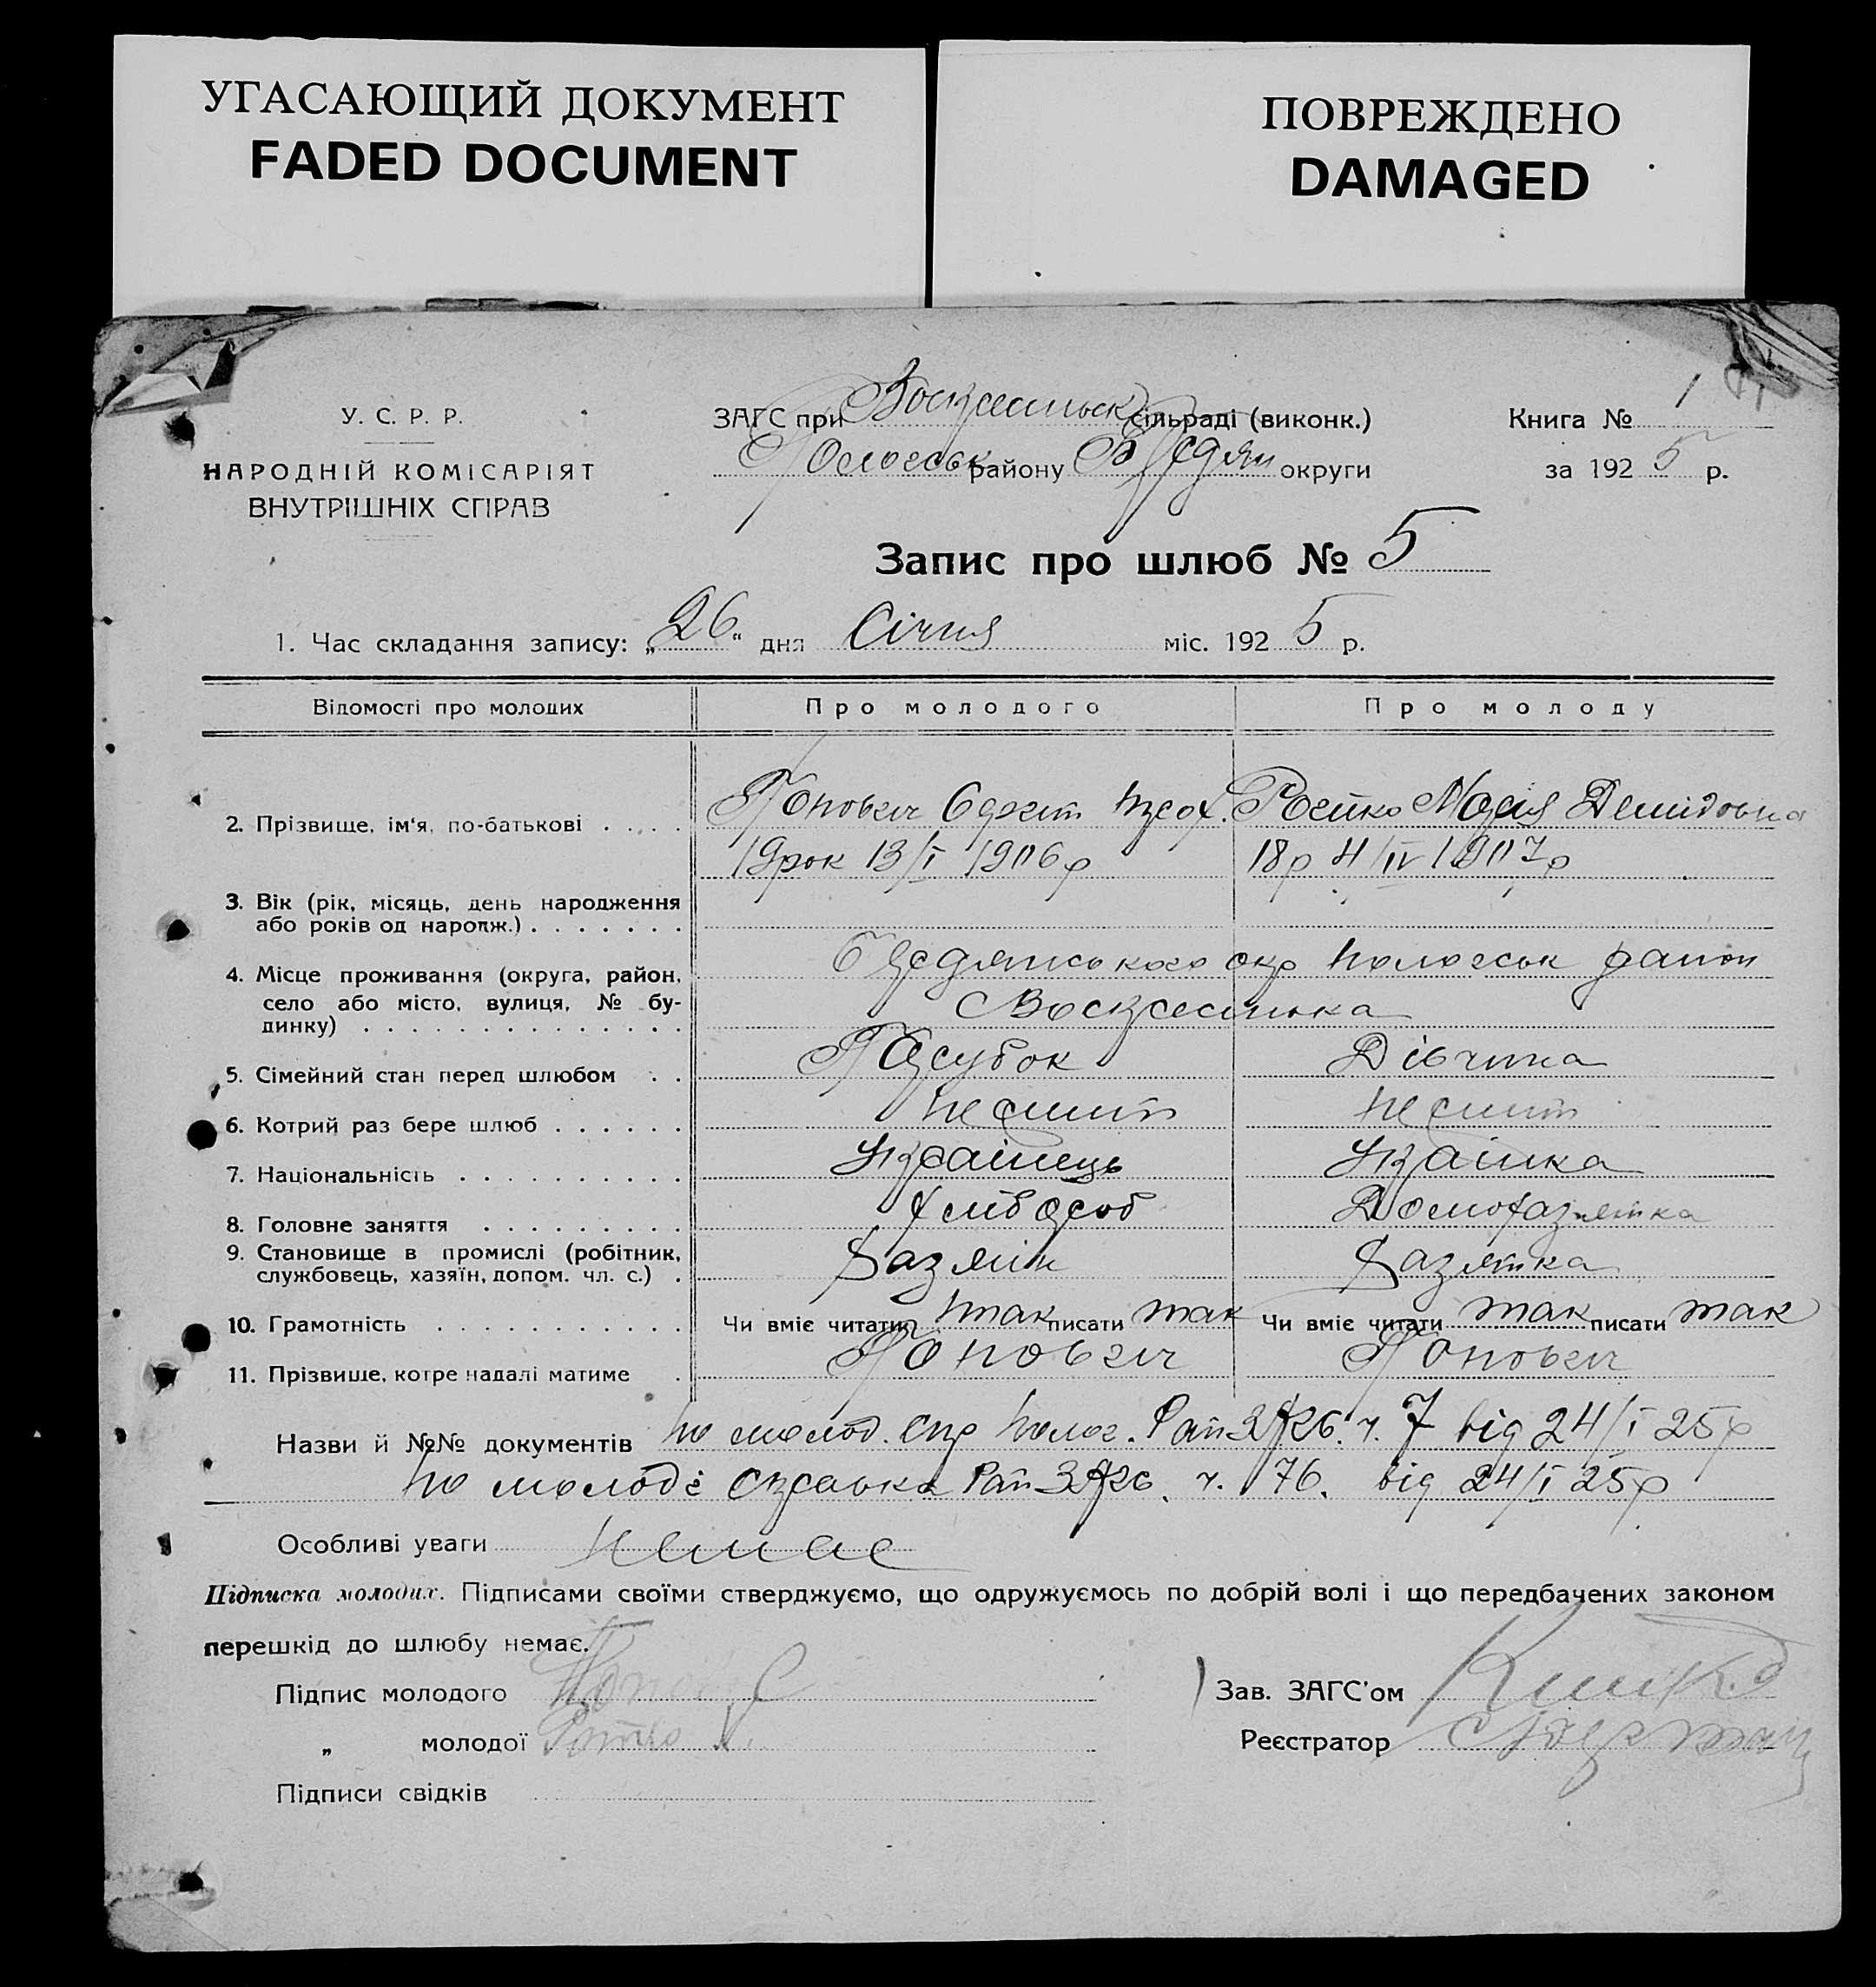 УГАСАЮЩИЙ ДОКУМЕНТ
FADED DOCUMENT
ПОВРЕЖДЕНО
DAMAGED
У. С. Р. Р.
НАРОДНІЙ КОМІСАРІЯТ
ВНУТРІШНІХ СПРАВ
ЗАГС при Воскресеньск сільраді (виконк.)
Пологськ району Бердян округи
Книга № 1
за 1925 р.
Запис про шлюб № 5
1. Час складання запису: „26" дня Січня міс. 1925 р.
Відомості про молодих Про молодого Про молоду
2. Прізвище, ім'я, по-батькові . . . . Попович Роєнко Марія Демидовна
19 рок 13/I 1906 р 18 р 4/IV 1907 р
3. Вік (рік, місяць, день народження
або років од народж.) . . . . . . .
4. Місце проживання (округа, район, Бердянського окр Пологськ район
село або місто, вулиця, № бу-
динку) . . . . . . . . . . . . . . Воскресенька
5. Сімейний стан перед шлюбом . . Парубок Дівчина
6. Котрий раз бере шлюб . . . . . . Перший Перший
7. Національність . . . . . . . . . . Українець Українка
8. Головне заняття . . . . . . . . . Хлібороб Домохазяйка
9. Становище в промислі (робітник,
службовець, хазяїн, допом. чл. с.) . Хазяїн Хазяйка
10. Грамотність . . . . . . . . . . . Чи вміє читати так писати так Чи вміє читати так писати так
11. Прізвище, котре надалі матиме . Попович Попович
Назви й №№ документів по молод. Спр Полог. Рай ч. 7 від 24/I 25 р
по молоді справка Рай ч. 76. від 24/I 25 р
Особливі уваги немає
Підписка молодих. Підписами своїми стверджуємо, що одружуємось по добрій волі і що передбачених законом
перешкід до шлюбу немає.
Підпис молодого
„ молодої
Підписи свідків
Зав. ЗАГС'ом
Реєстратор